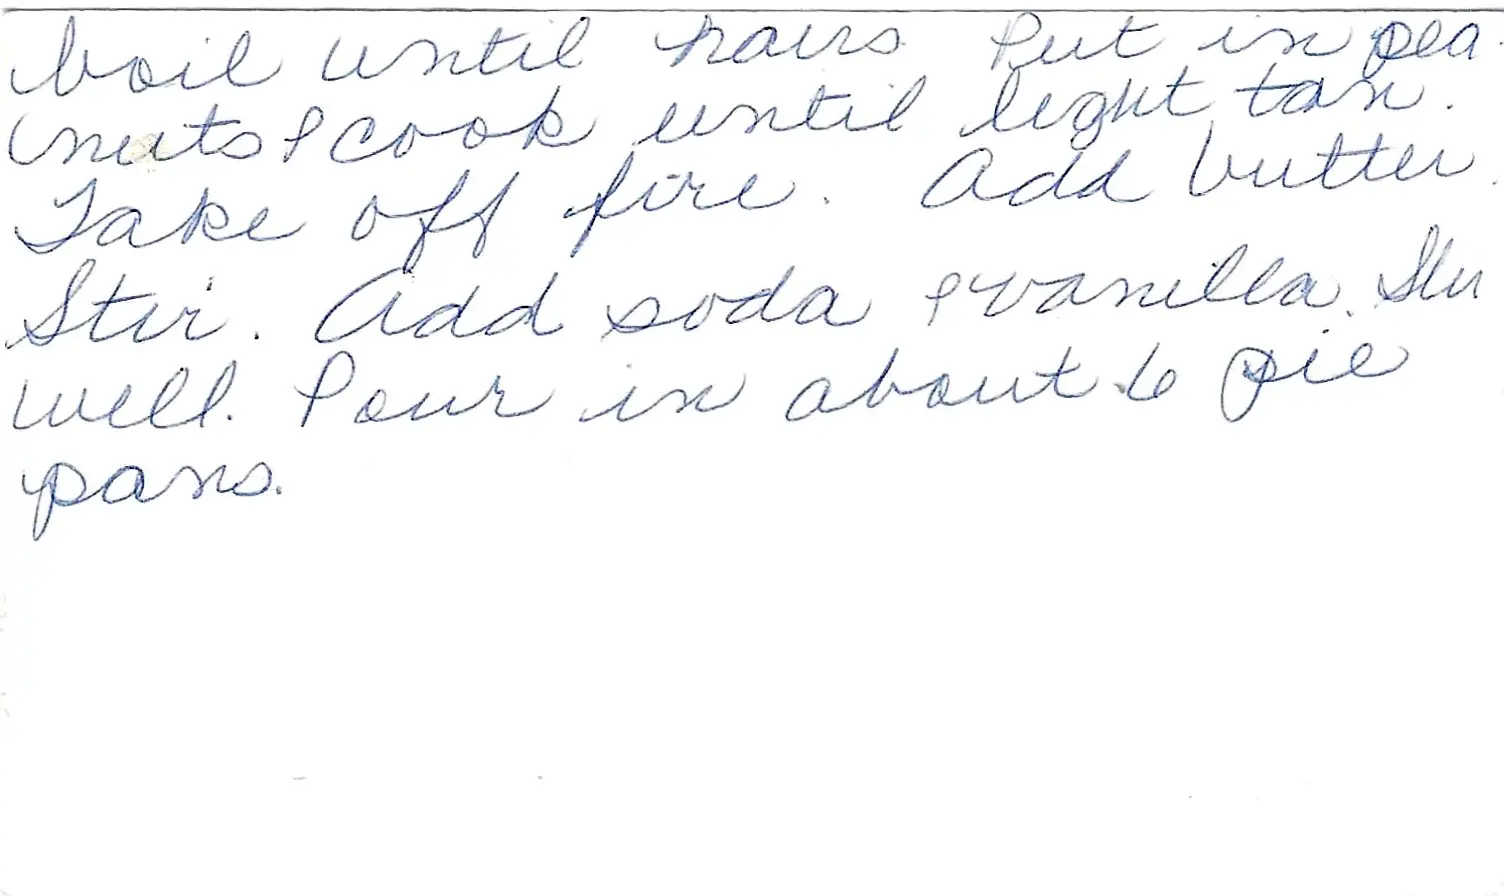 boil until hairs. Put in pea-
nuts & cook until light tan.
Take off fire. Add butter.
Stir. Add soda & vanilla. Stir
well. Pour in about 6 pie
pans.